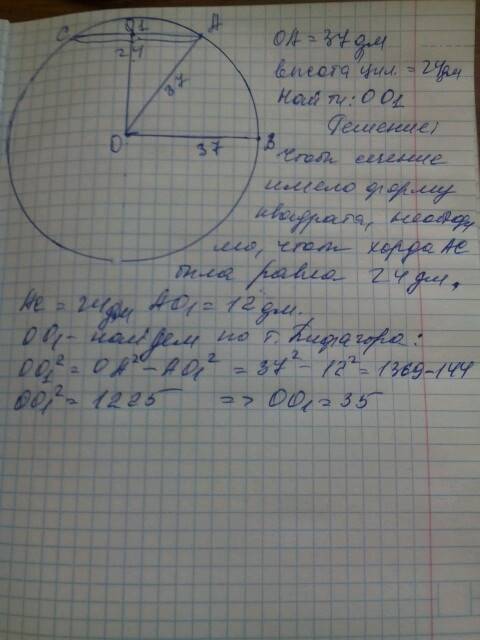 C O1 A
24
37
O 37 B
OA = 37 дм
высота цил. = 24 дм
Найти: OO1
Решение:
Чтоб сечение
имело форму
квадрата, необходи
мо, чтоб хорда AC
была равна 24 дм.
AC = 24 дм AO1 = 12 дм.
OO1 - найдем по т. Пифагора:
OO1² = OA² - AO1² = 37² - 12² = 1369 - 144
OO1² = 1225 => OO1 = 35